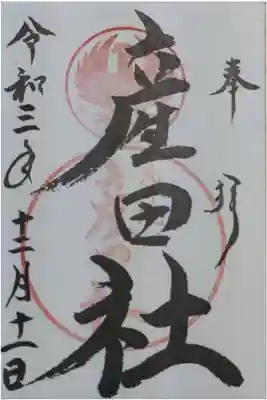 奉拝
産田社
令和三年
十二月十一日